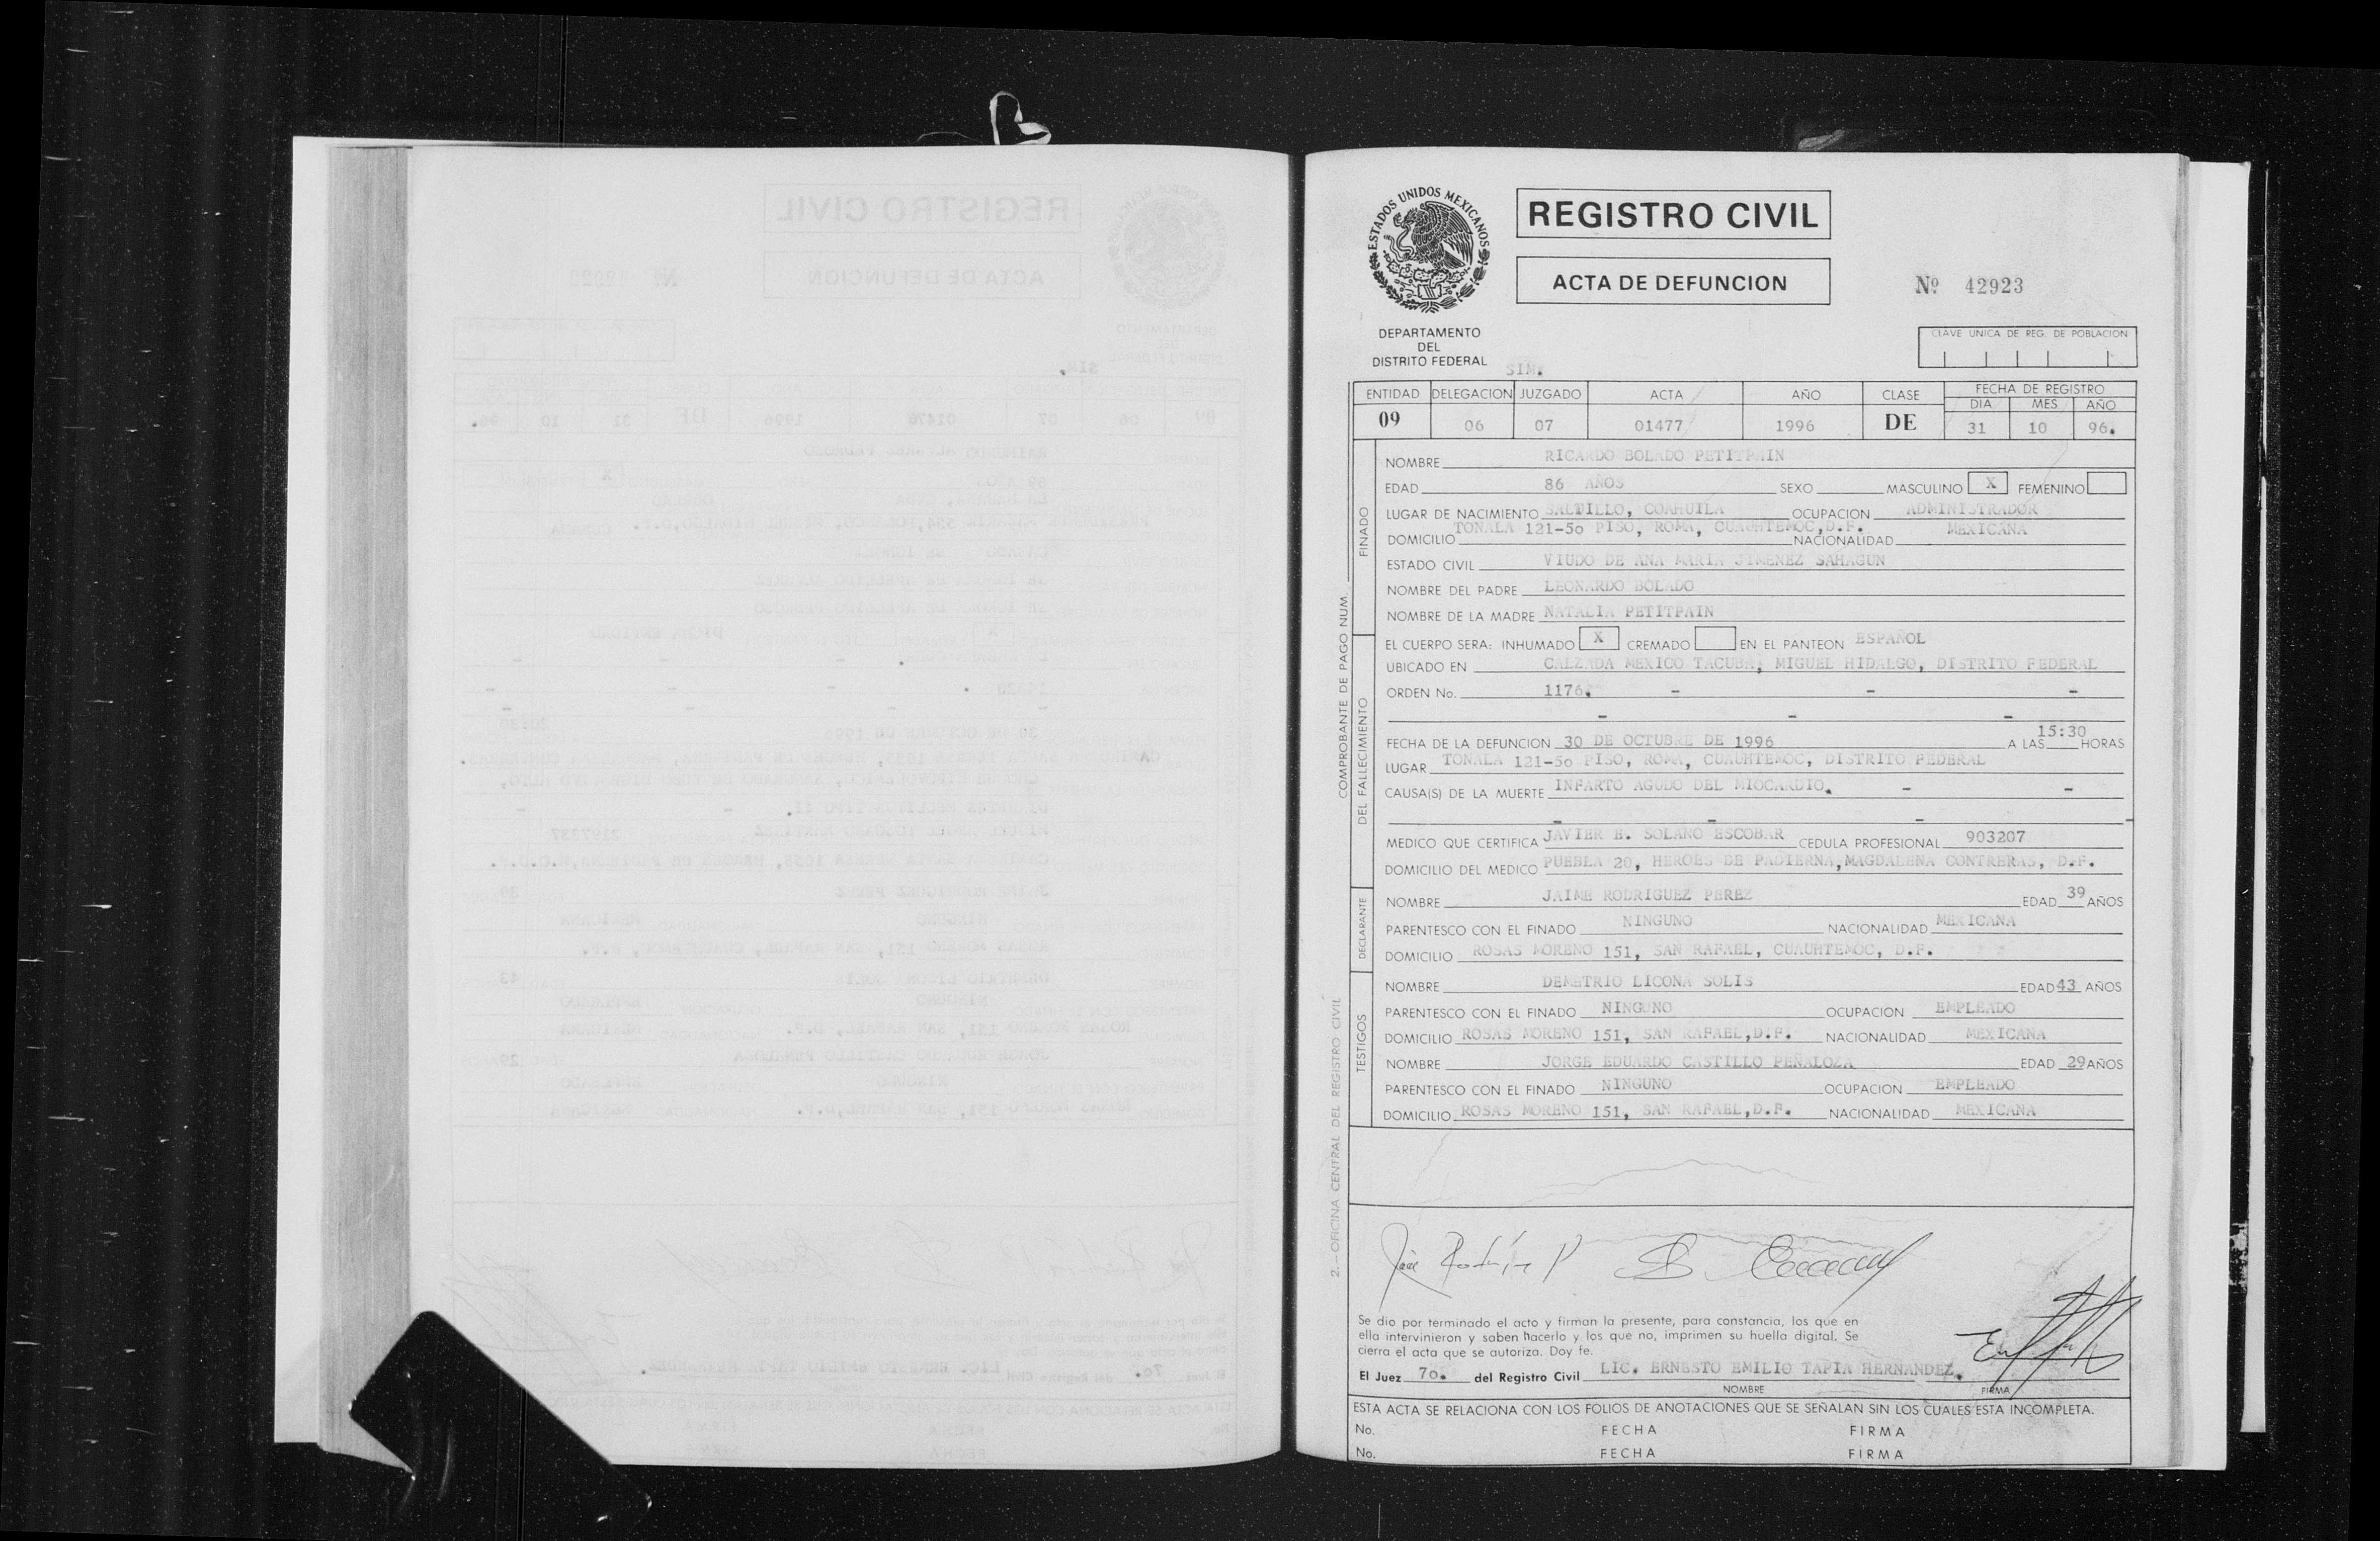 ESTADOS UNIDOS MEXICANOS
REGISTRO CIVIL
ACTA DE DEFUNCION
Nº 42923
DEPARTAMENTO
DEL
DISTRITO FEDERAL
CLAVE UNICA DE REG. DE POBLACION
SIN.
ENTIDAD DELEGACION JUZGADO ACTA AÑO CLASE FECHA DE REGISTRO
DIA MES AÑO
09 06 07 01477 1996 DE 31 10 96.
FINADO
NOMBRE RICARDO BOLADO PETITPAIN
EDAD 86 AÑOS SEXO MASCULINO X FEMENINO
LUGAR DE NACIMIENTO SALTILLO, COAHUILA OCUPACION ADMINISTRADOR
DOMICILIO TONALA 121-5o PISO, ROMA, CUAUHTEMOC,D.F. NACIONALIDAD MEXICANA
ESTADO CIVIL VIUDO DE ANA MARIA JIMENEZ SAHAGUN
NOMBRE DEL PADRE LEONARDO BOLADO
NOMBRE DE LA MADRE NATALIA PETITPAIN
DEL FALLECIMIENTO
EL CUERPO SERA: INHUMADO X CREMADO EN EL PANTEON ESPAÑOL
UBICADO EN CALZADA MEXICO TACUBA, MIGUEL HIDALGO, DISTRITO FEDERAL
ORDEN No. 1176. - - -
- - -
FECHA DE LA DEFUNCION 30 DE OCTUBRE DE 1996 A LAS 15:30 HORAS
LUGAR TONALA 121-5o PISO, ROMA, CUAUHTEMOC, DISTRITO FEDERAL
CAUSA(S) DE LA MUERTE INFARTO AGUDO DEL MIOCARDIO. - -
- - - -
MEDICO QUE CERTIFICA JAVIER E. SOLANO ESCOBAR CEDULA PROFESIONAL 903207
DOMICILIO DEL MEDICO PUEBLA 20, HEROES DE PADIERNA,MAGDALENA CONTRERAS, D.F.
DECLARANTE
NOMBRE JAIME RODRIGUEZ PEREZ EDAD 39 AÑOS
PARENTESCO CON EL FINADO NINGUNO NACIONALIDAD MEXICANA
DOMICILIO ROSAS MORENO 151, SAN RAFAEL, CUAUHTEMOC, D.F.
TESTIGOS
NOMBRE DEMETRIO LICONA SOLIS EDAD 43 AÑOS
PARENTESCO CON EL FINADO NINGUNO OCUPACION EMPLEADO
DOMICILIO ROSAS MORENO 151, SAN RAFAEL,D.F. NACIONALIDAD MEXICANA
NOMBRE JORGE EDUARDO CASTILLO PEÑALOZA EDAD 29 AÑOS
PARENTESCO CON EL FINADO NINGUNO OCUPACION EMPLEADO
DOMICILIO ROSAS MORENO 151, SAN RAFAEL,D.F. NACIONALIDAD MEXICANA
COMPROBANTE DE PAGO NUM.
2.- OFICINA CENTRAL DEL REGISTRO CIVIL
Se dio por terminado el acto y firman la presente, para constancia, los que en
ella intervinieron y saben hacerlo y los que no, imprimen su huella digital. Se
cierra el acta que se autoriza. Doy fe.
El Juez 7o. del Registro Civil LIC. ERNESTO EMILIO TAPIA HERNANDEZ.
NOMBRE FIRMA
ESTA ACTA SE RELACIONA CON LOS FOLIOS DE ANOTACIONES QUE SE SEÑALAN SIN LOS CUALES ESTA INCOMPLETA.
No. FECHA FIRMA
No. FECHA FIRMA